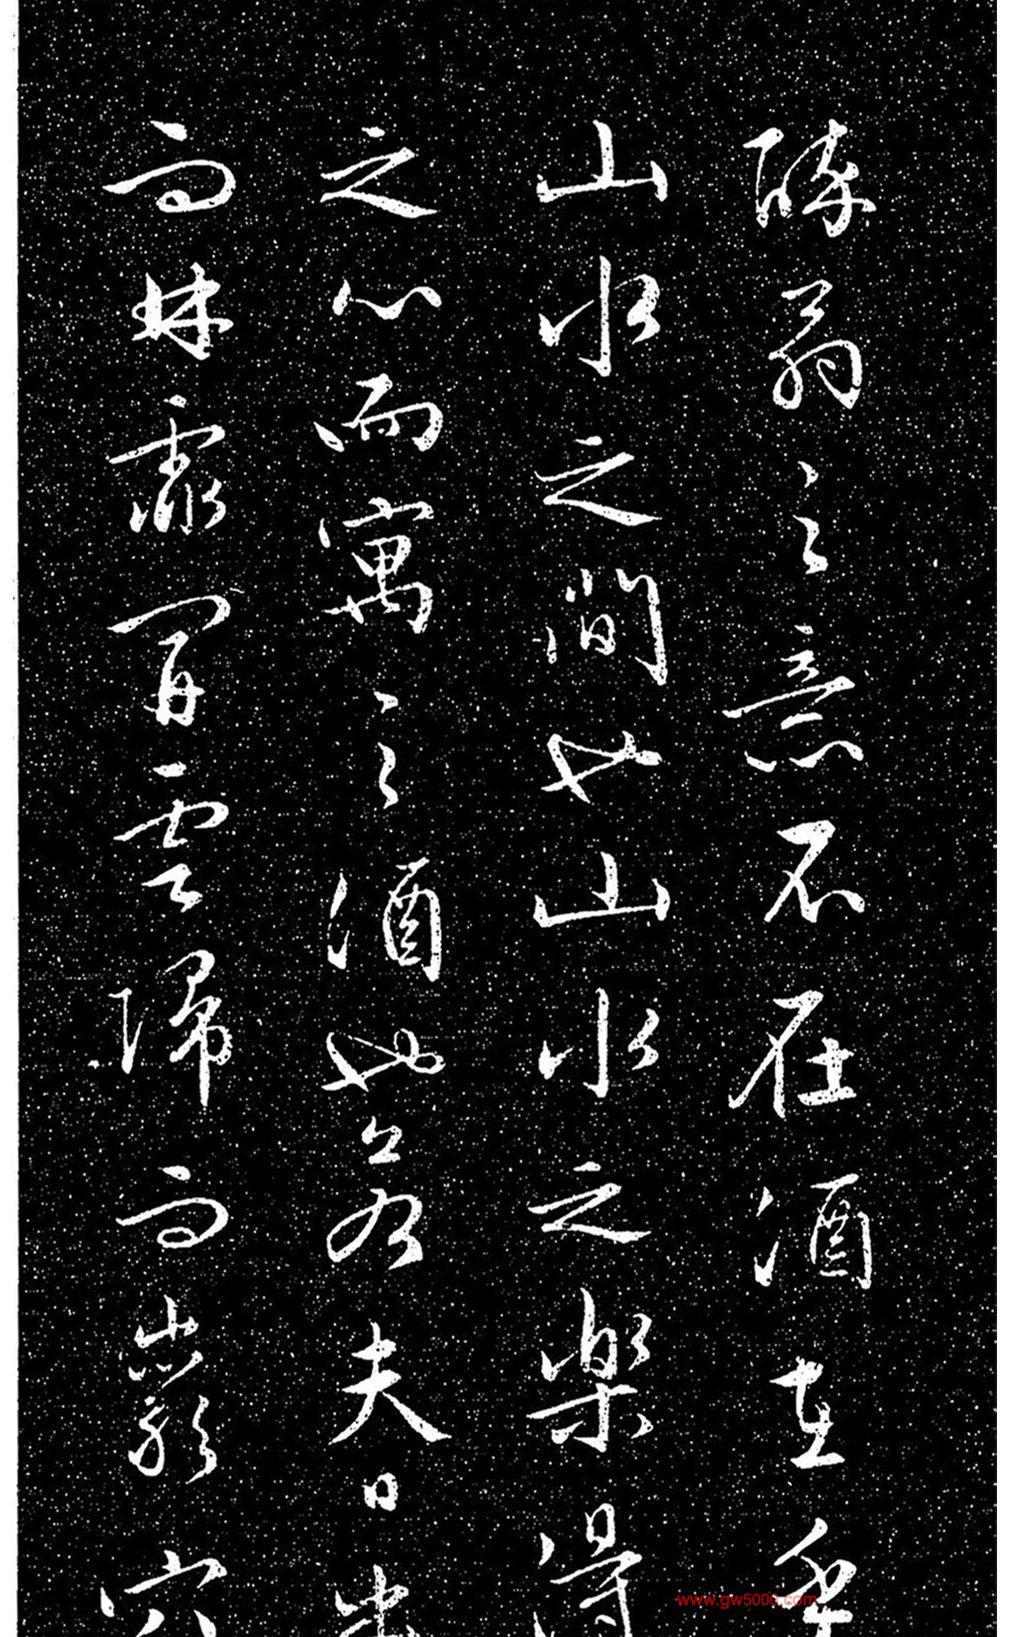 醉翁之意不在酒在乎
山水之間也山水之樂得
之心而寓之酒也若夫日出
而林霏開雲歸而巖穴
www.gw5000.com